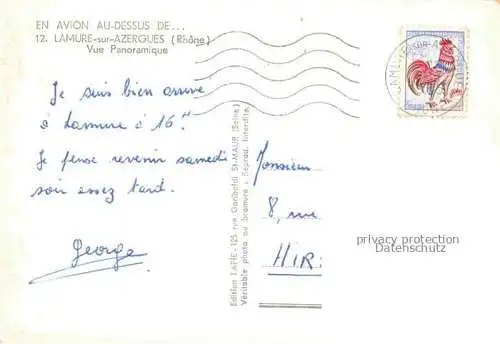 EN AVION AU-DESSUS DE...
12. LAMURE-sur-AZERGUES (Rhône)
Vue Panoramique
Je suis bien arrivé
à Lamure à 16 h
Je pense revenir samedi
soir assez tard.
George
Edition LAPIE - 125 rue Garibaldi St-MAUR (Seine)
Véritable photo au bromure - Reprod. Interdite.
Monsieur
8, rue
HIR
privacy protection
Datenschutz